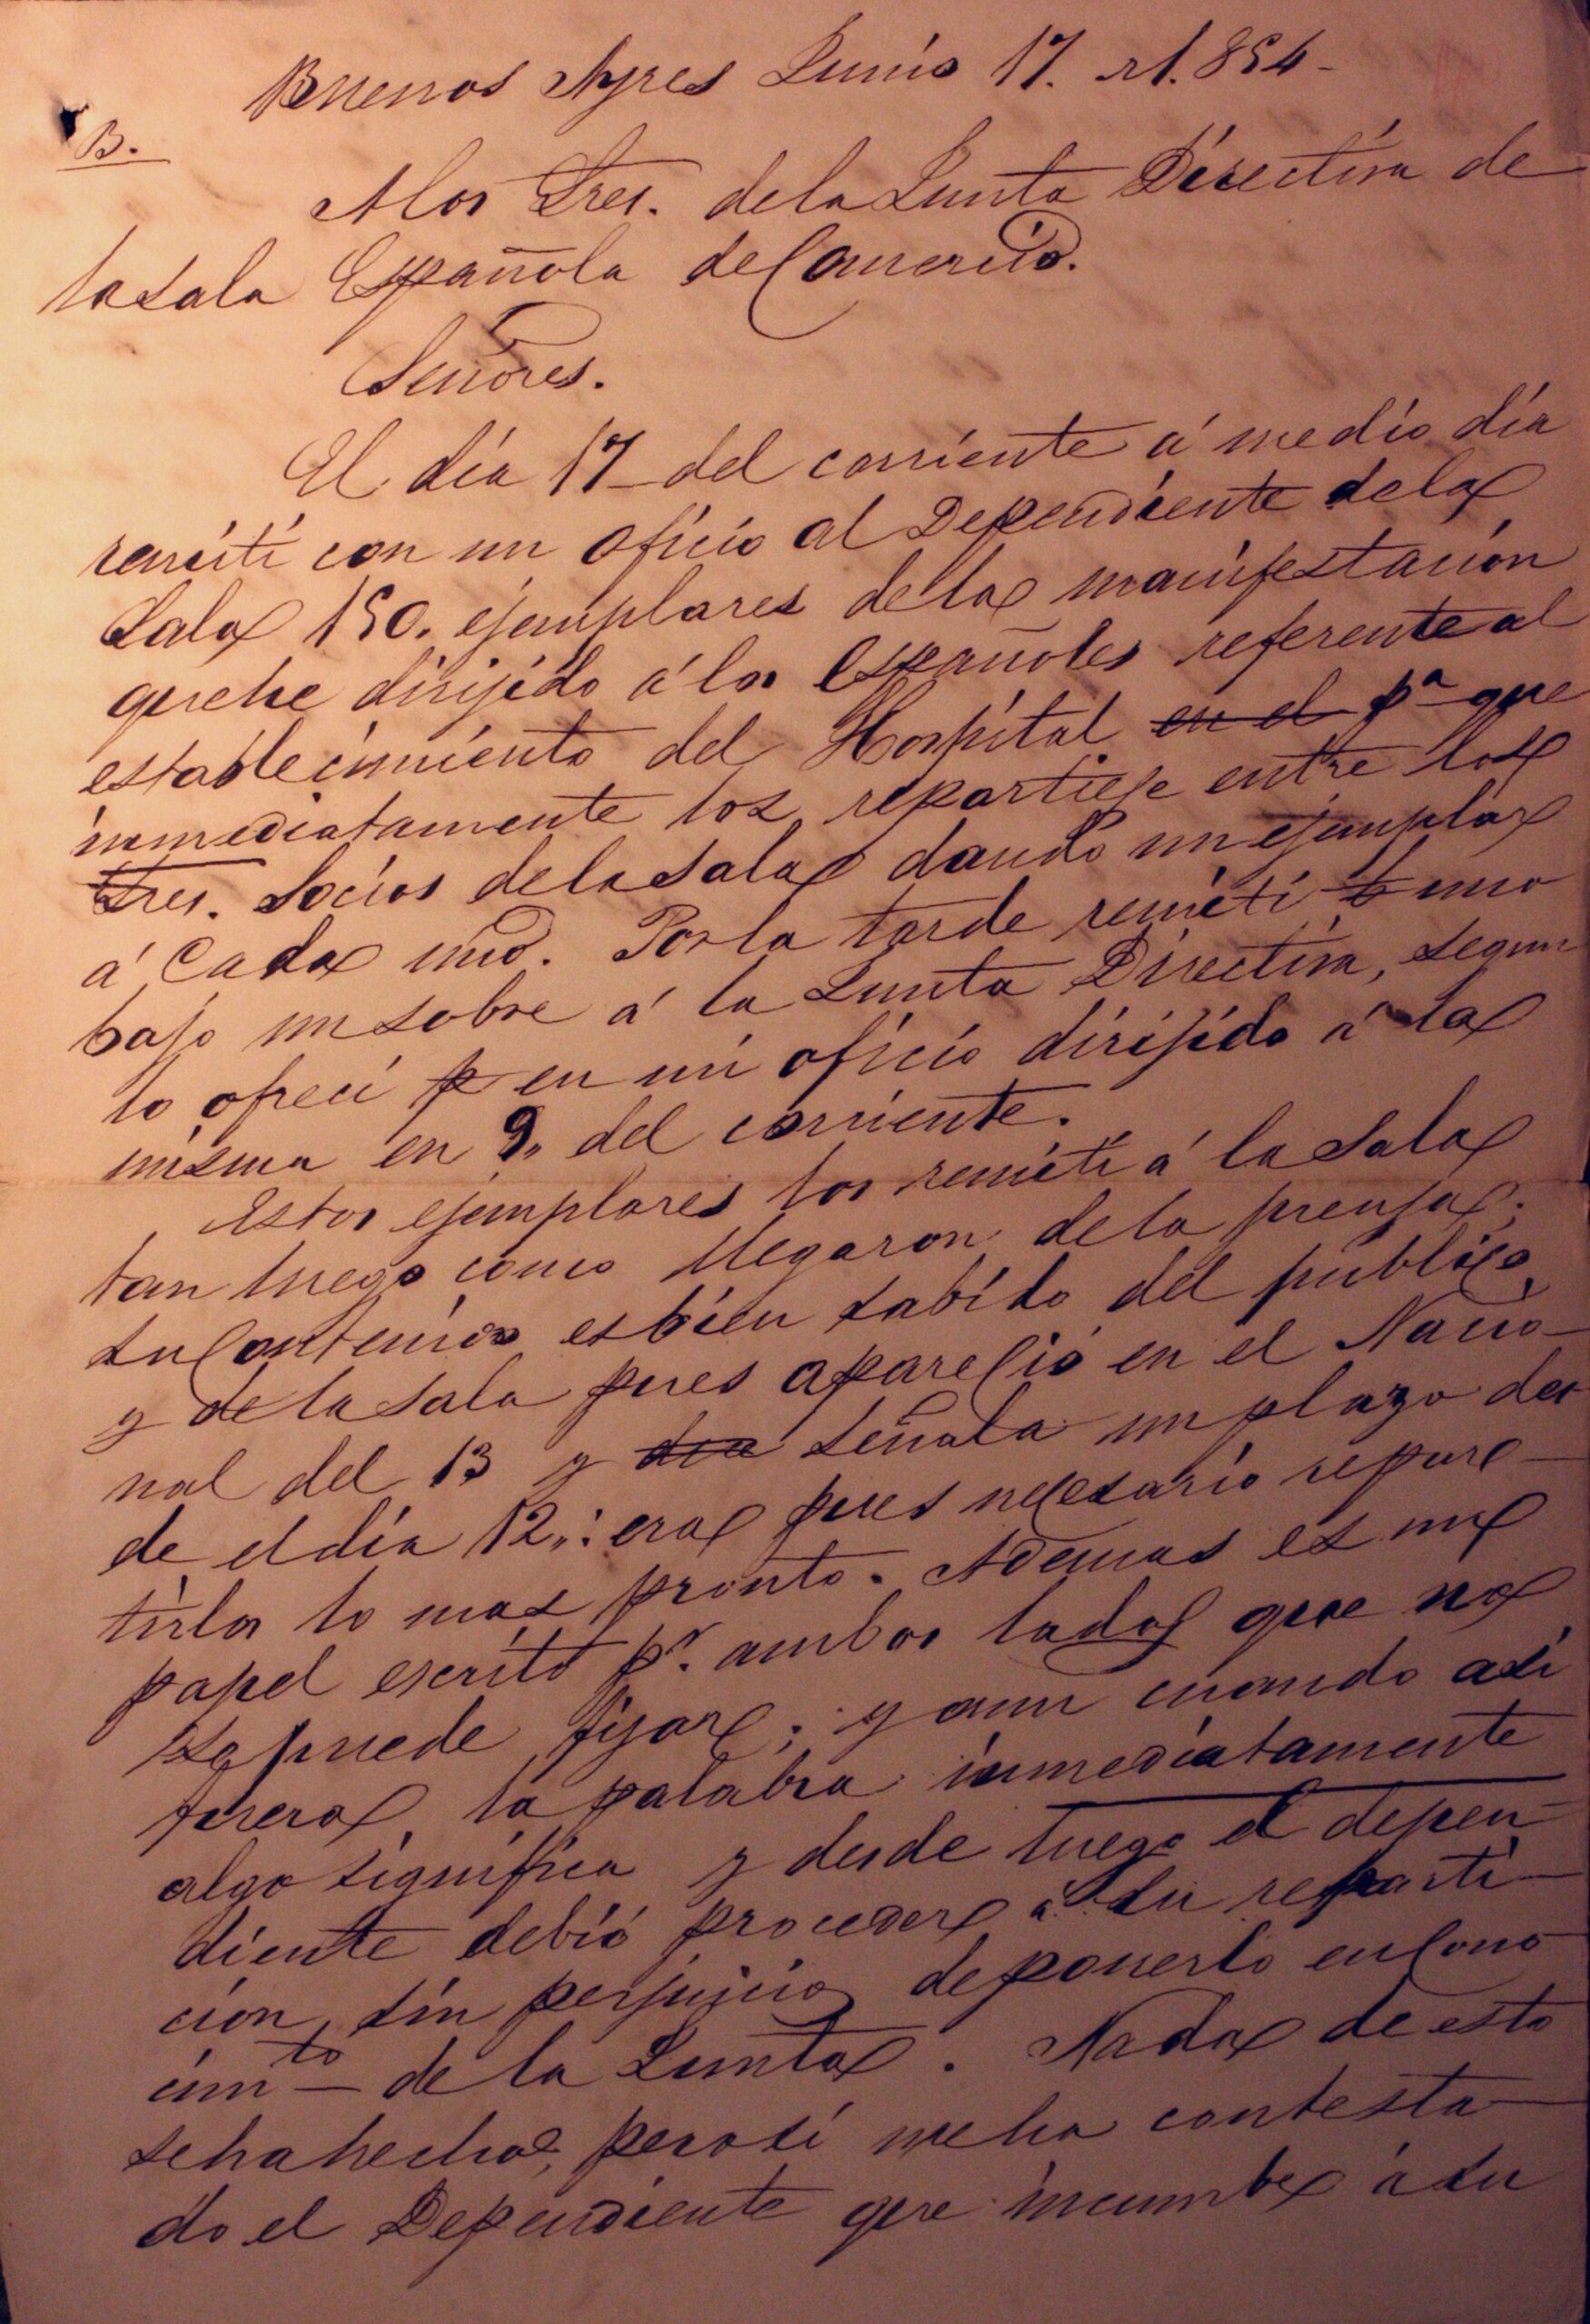 Buenos Ayres Junio 17. de 1.854-
B.
A los Sres. de la Junta Directiva de
la Sala Española de Comercio.
Señores.
El dia 17 del corriente á medio dia
remiti con un oficio al Dependiente de la
Sala 150. ejemplares de la manifestacion
que he dirijido á los Españoles referente al
establecimiento del Hospital en el pª que
inmediatamente los repartiese entre los
Sres. Socios de la Sala dando un ejemplar
á cada uno. Por la tarde remiti uno
bajo un sobre á la Junta Directiva, segun
lo ofreci p en mi oficio dirijido á la
misma en 9,, del corriente.
Estos ejemplares los remiti á la Sala
tan luego como llegaron de la prensa:
su contenido es bien sabido del publico
y de la Sala pues aparecio en el Nacio-
nal del 13 y dia señala un plazo des
de el dia 12,,: era pues necesario repar-
tirlos lo mas pronto. Ademas es un
papel escrito pr. ambos lados que no
se puede fijar; y aun cuando asi
fuera, la palabra inmediatamente
algo significa y desde luego el depen-
diente debió proceder á su reparti-
cion, sin perjuicio de ponerlo en cono-
cimto de la Junta. Nada de esto
se ha hecho, pero si me ha contesta-
do el Dependiente que incumbe á su